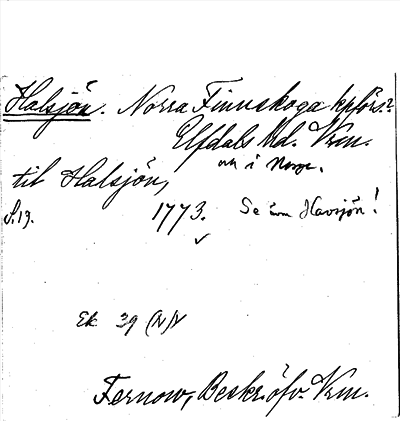 Halsjön. Norra Finnskoga kpförs.?
Elfdals Hd. Vrm.
och i Norge.
til Halsjön,
S. 19. 1773. Se äm Havsjön!
Ek 39 (N)V
Fernow, Beskr. öfv. Vrm.